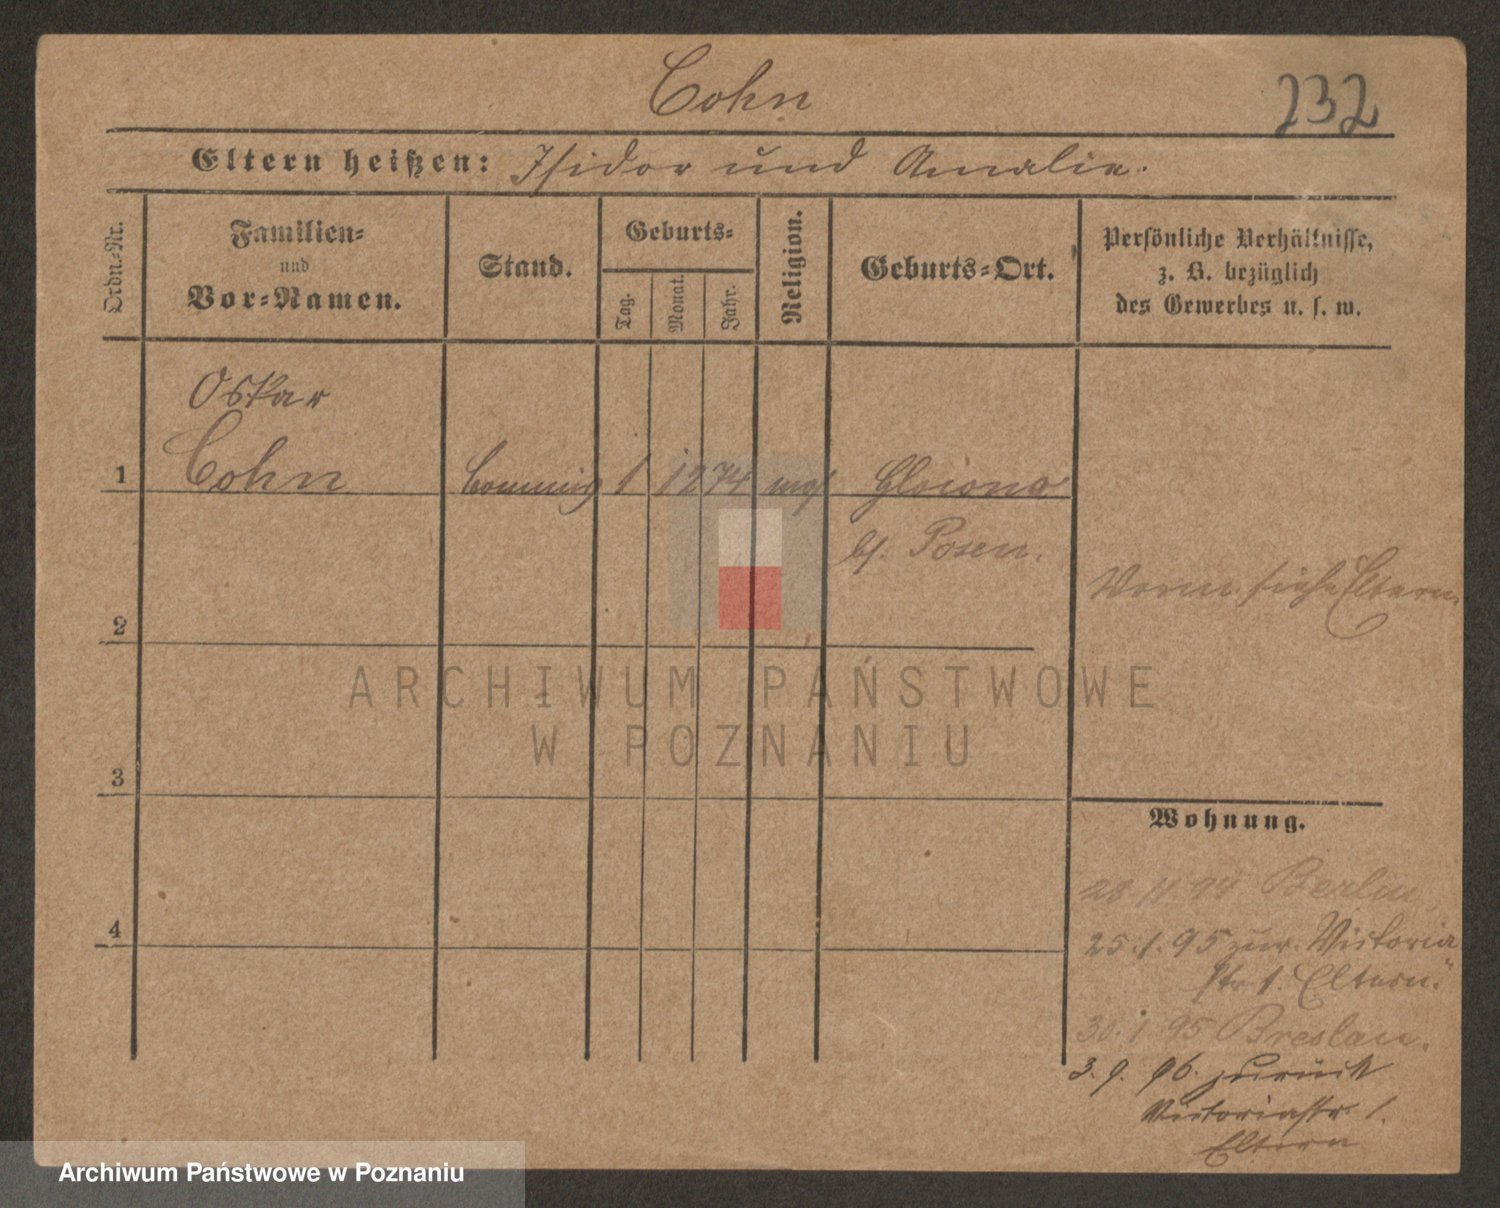 Cohn
232
Eltern heißen: Isidor und Amalie.
Ordn.-Nr.
Familien-
und
Vor-Namen.
Stand.
Geburts-
Tag.
Monat.
Jahr.
Religion.
Geburts-Ort.
Persönliche Verhältnisse,
z. B. bezüglich
des Gewerbes u. s. w.
Oskar
1 Cohn 1 12 74 mos
b/. Posen.
Vorm. siehe Eltern
2
3
4
Wohnung.
28 11 94 Berlin
25.1.95 zur. Victoria
str 1. Eltern.
30.1 95 Breslau.
3.9.96. zurück
Victoriastr. 1.
Eltern
ARCHIWUM PAŃSTWOWE
W POZNANIU
Archiwum Państwowe w Poznaniu